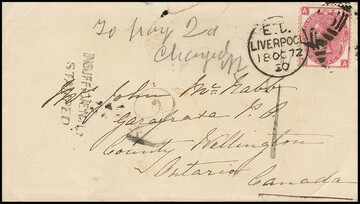 To pay 2d
Charge
E.C.
LIVERPOOL
18 OC 72
INSUFFICIENTLY
STAMPED
John McNabb
Garafraxa P.O
County Wellington
Ontario
Canada
A
A